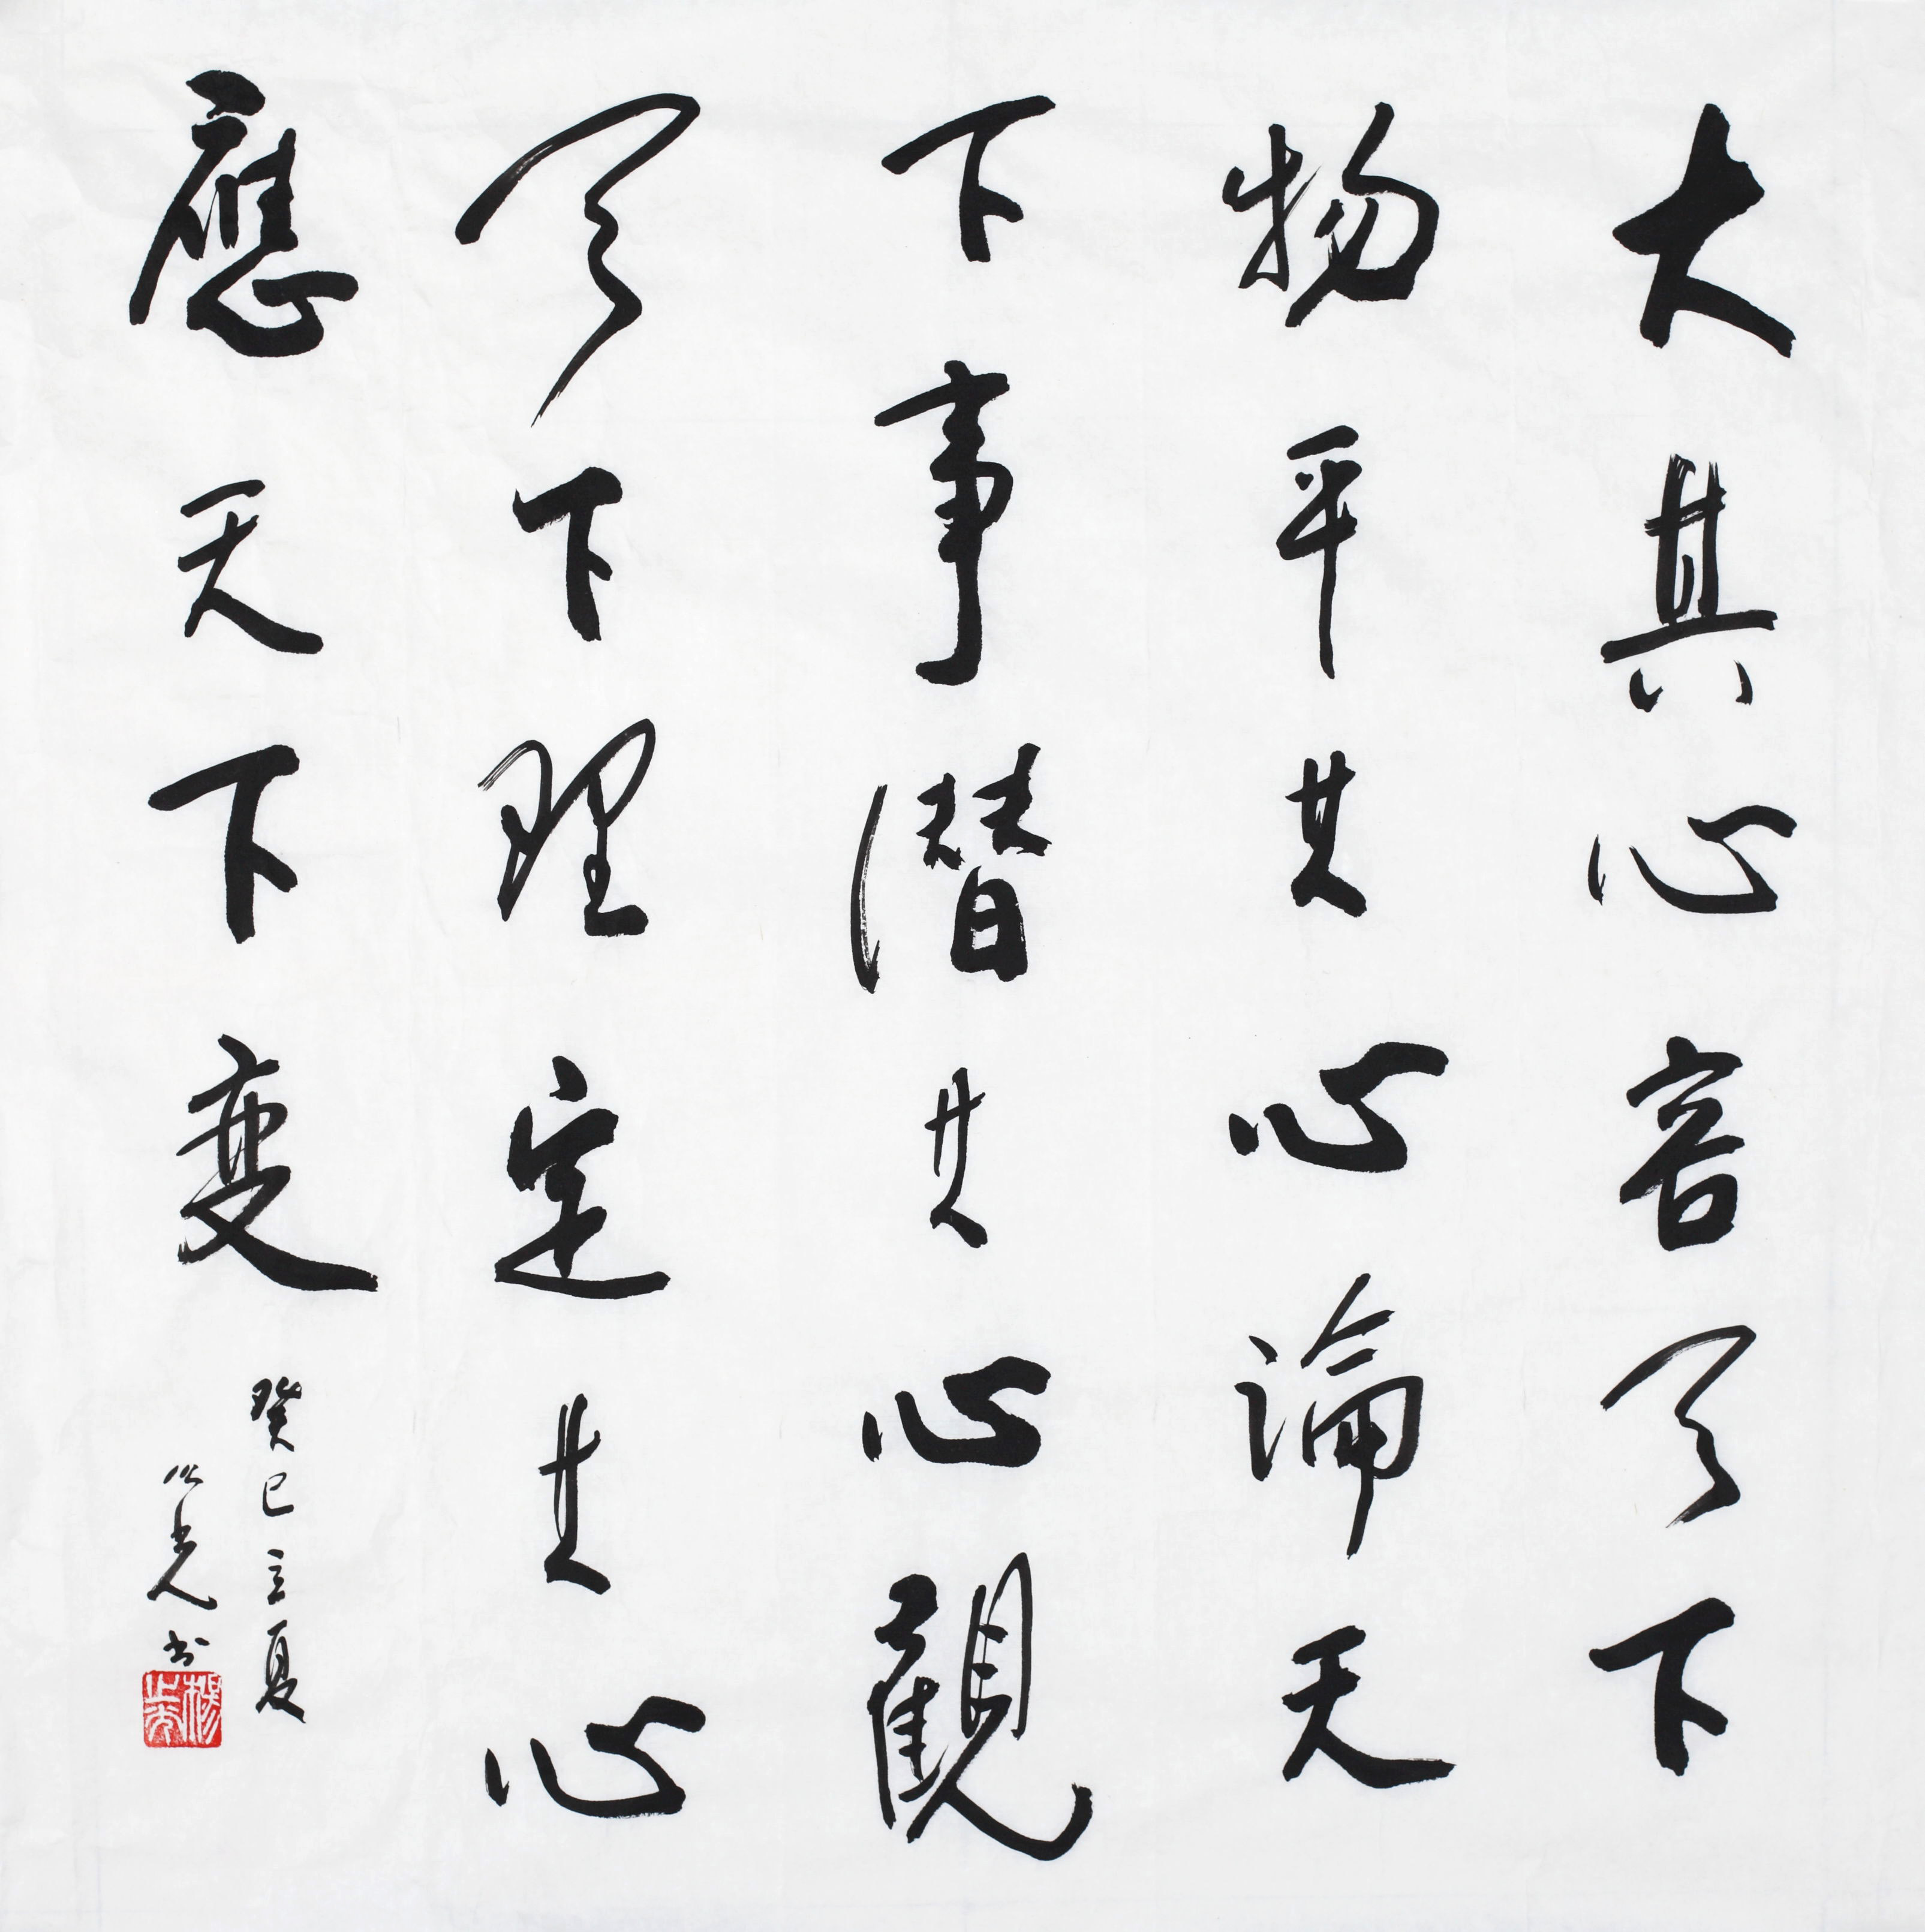 大其心容天下
物平其心論天
下事潛其心觀
天下理定其心
應天下變
癸巳立夏
以光书